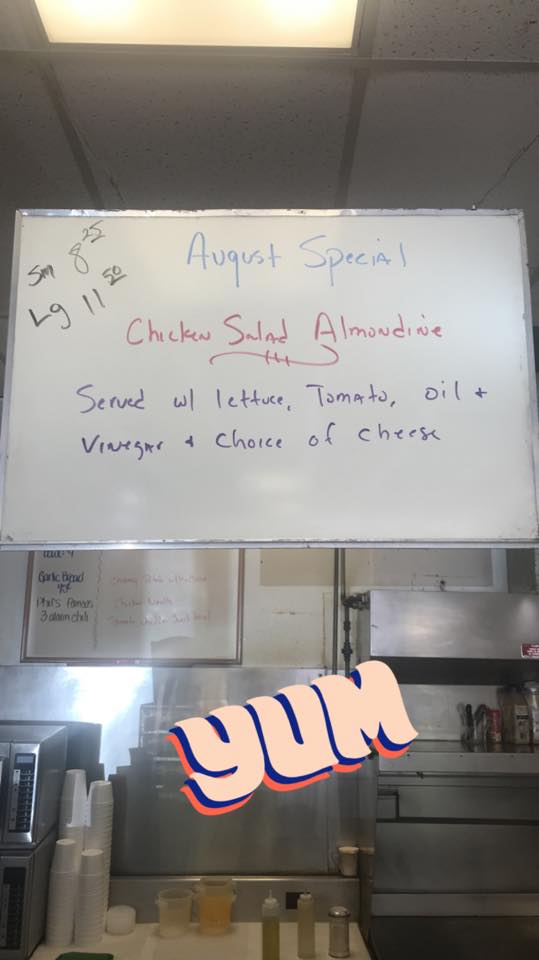 Sm 8 25
Lg 11 50
August Special
Chicken Salad Almondine
Served w/ lettuce, Tomato, oil +
Vinegar + Choice of cheese
Garlic Bread
Phil's Famous
3 alarm chili
YUM